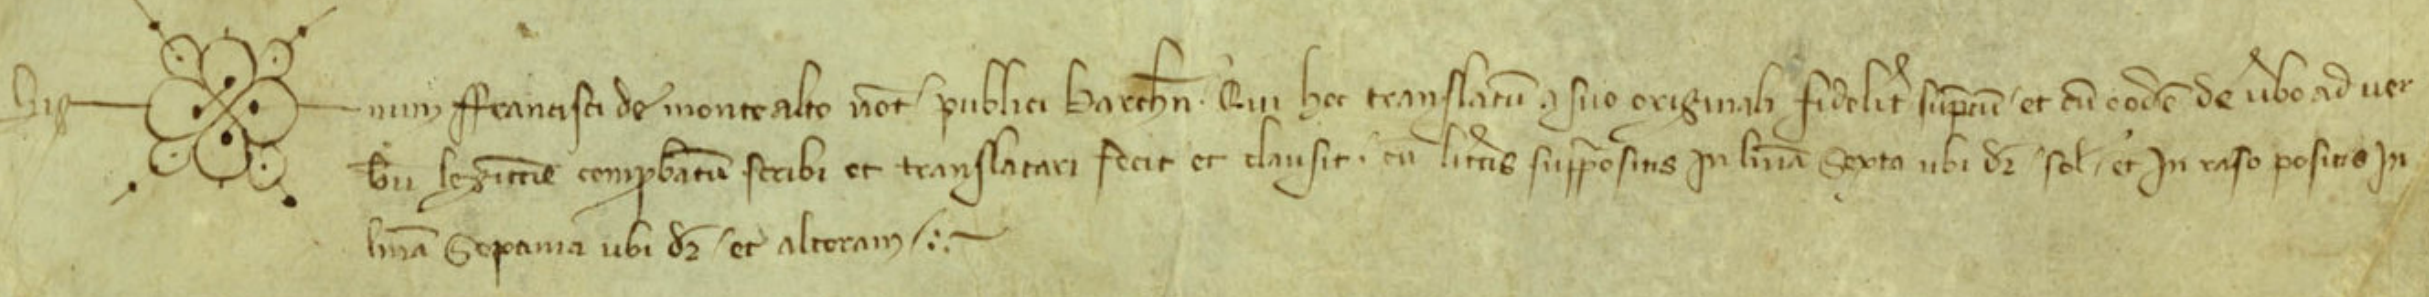 Sig num ffrancisci de monte alto not̄ publici barchn̄. Qui hoc translatū a suo originali fidelit̉ sūptū et cū eodē de v̉bo ad ver
bū legittīe comp̱batū scribi et translatari fecit et clausit. cū litt̉is supp̄ositis in linea sexta ubi dr̄ sol et in raso positis in
linea septima ubi dr̄ et alteram